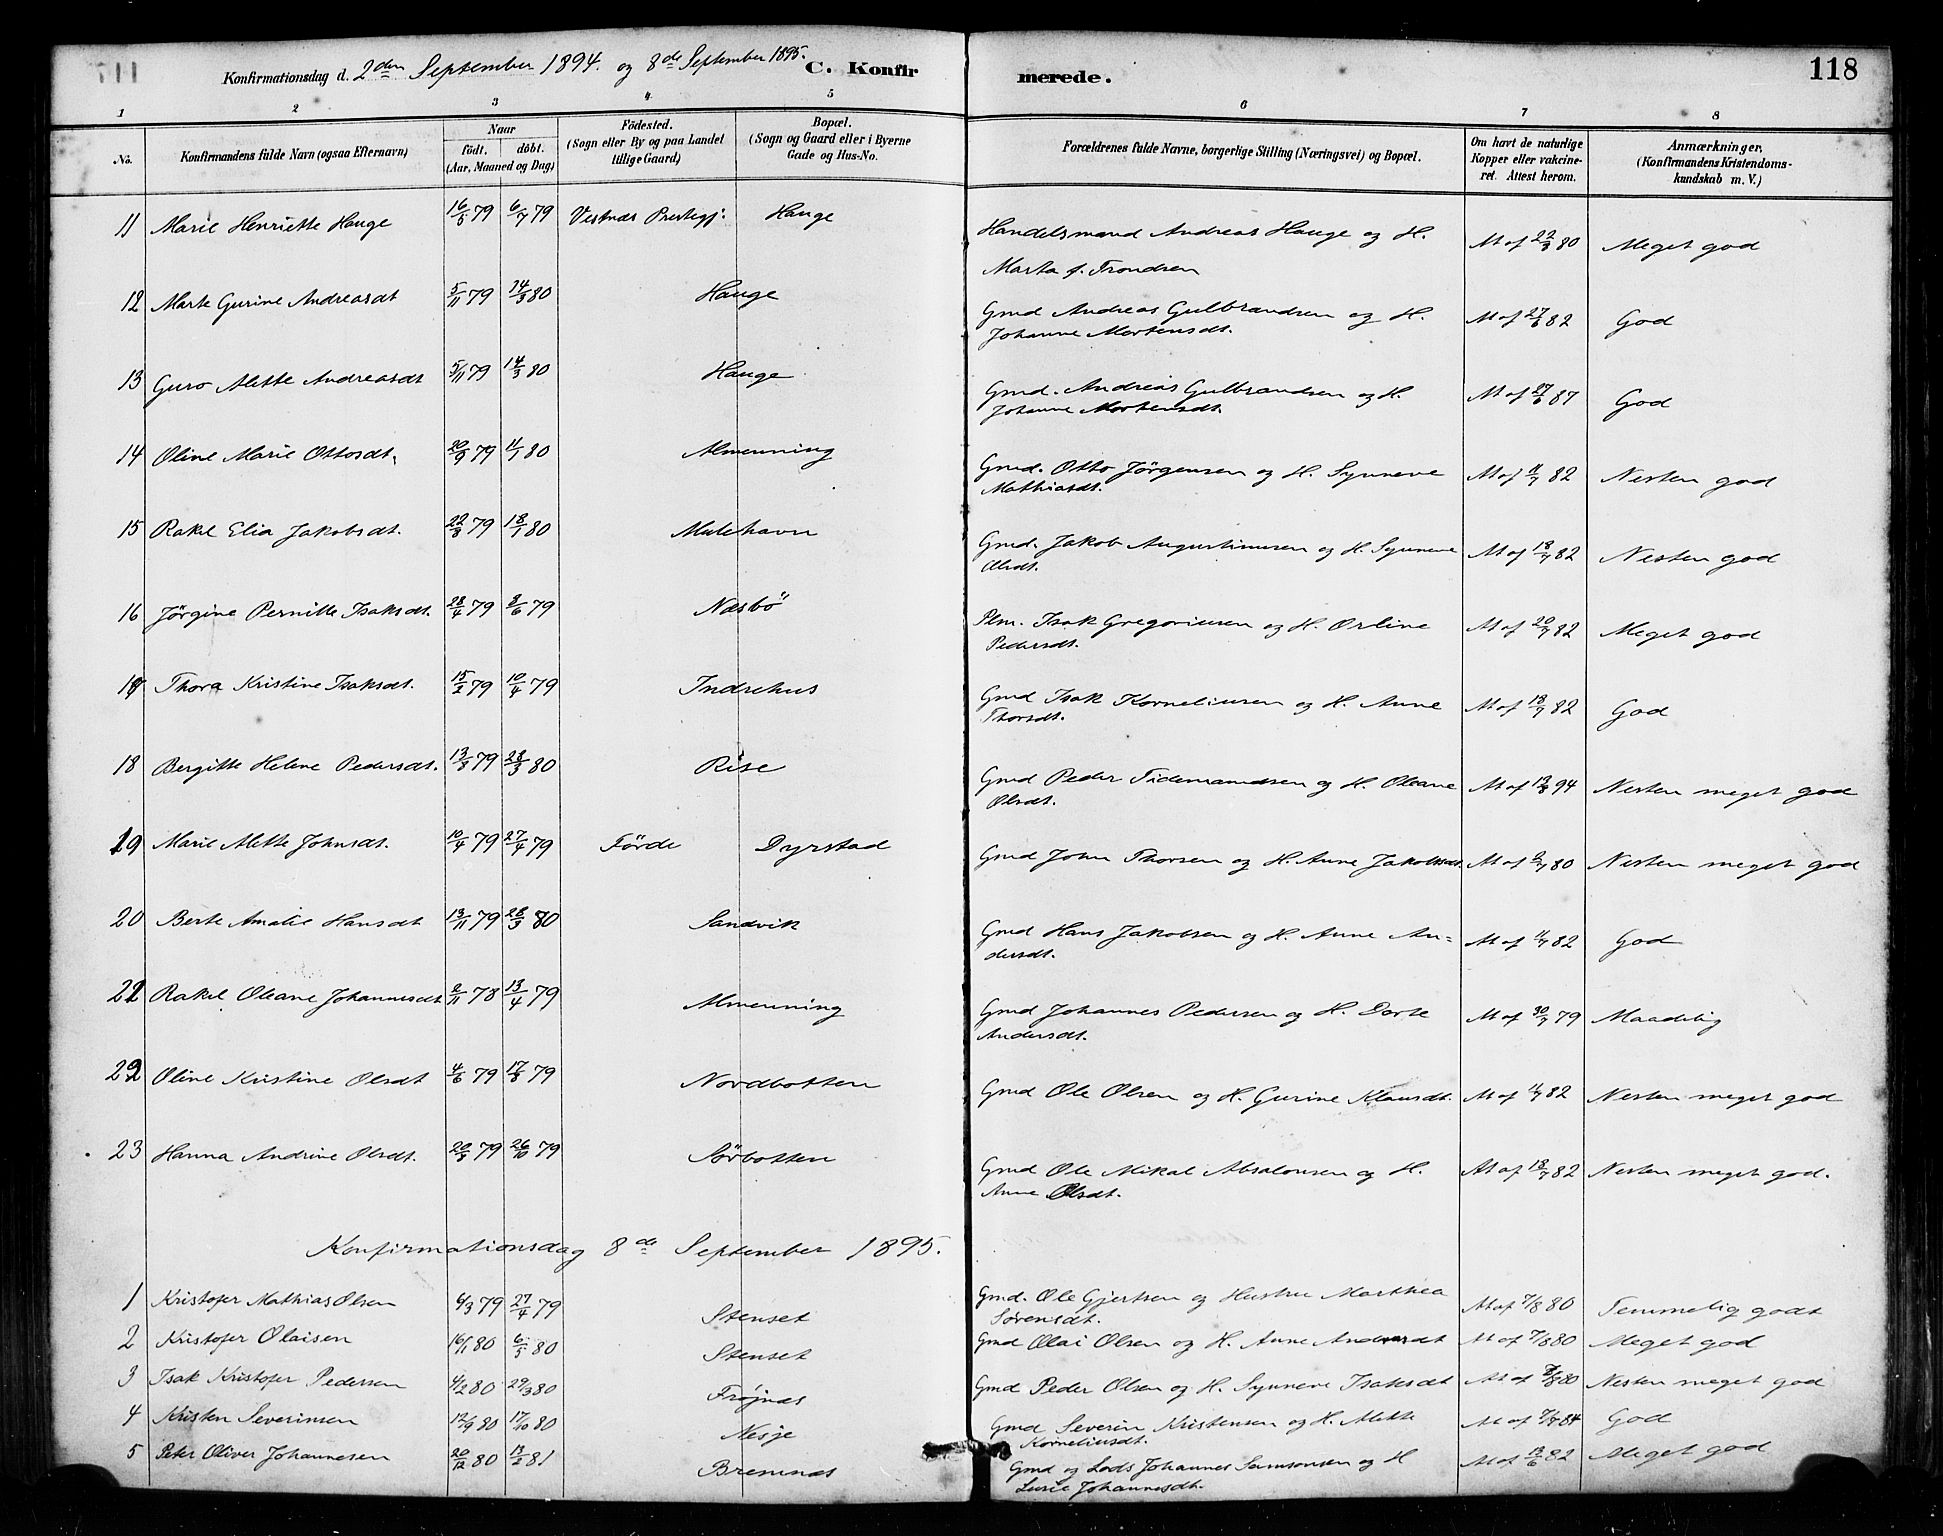 Konfirmationsdag d. 2den September 1894. og 8de September 1895. C. Konfirmerede. 118
1 2 3 4 5 6 7 8
No. Konfirmandens fulde Navn (ogsaa Efternavn) Naar födt. döbt. (Aar, Maaned og Dag) Födested. (Sogn eller By og paa Landet tillige Gaard) Bopæl. (Sogn og Gaard eller i Byerne Gade og Hus-No. Forældrenes fulde Navne, borgerlige Stilling (Næringsvei) og Bopæl. Om havt de naturlige Kopper eller vakcineret. Attest herom. Anmærkninger, (Konfirmandens Kristendomskundskab m. V.)
11 Marie Henriette Hauge 16/5 79 6/7 79 Vestnæs Prestegj. Hauge Handelsmand Andreas Hauge og H. At af 22/3 80 Meget god
Marta f. Trondsen
12 Marte Gurine Andreasdt 5/11 79 14/3 80 Hauge Gmd Andreas Gulbrandsen og H. At af 27/6 82 God
Johanne Mortensdt.
13 Guro Mette Andreasdt 5/11 79 14/3 80 Hauge Gmd. Andreas Gulbrandsen og H. At af 27/6 87 God
Johanne Mortensdt.
14 Oline Marie Ottosdt. 20/9 79 11/1 80 Almenning Gmd. Otto Jörgensen og H. Synneve At af 11/7 82 Nesten god
Mathiasdt.
15 Rakel Elia Jakobsdt. 22/8 79 18/1 80 Mulehavn Gmd. Jakob Augustinusen og H. Synneve At af 18/7 82 Nesten god
Olsdt.
16 Jörgine Pernille Isaksdt. 28/4 79 8/6 79 Næsbö Plm. Isak Gregoriusen og H. Orline At af 20/7 82 Meget god
Pedersdt.
17 Thora Kristine Isaksdt. 15/2 79 10/4 79 Indrehus Gmd Isak Korneliusen og H. Anne At af 18/7 82 God
Thorsdt.
18 Bergitte Helene Pedersdt. 13/3 79 28/3 80 Rise Gmd Peder Tidemandsen og H. Oleane At af 13/8 94 Nesten meget god
Olsdt.
19 Marie Mette Johnsdt. 10/4 79 27/4 79 Förde Dyrstad Gmd John Thorsen og H. Anne Jakobsdt. At af 9/7 80 Nesten meget god
20 Berte Amalie Hansdt 13/11 79 28/3 80 Sandvik Gmd Hans Jakobsen og H. Anne An= At af 11/7 82 God
dersdt.
21 Rakel Oleane Johannesdt 2/11 78 13/4 79 Almenning Gmd Johannes Pedersen og H. Dorte At af 30/7 79 Maadelig
Andersdt.
22 Oline Kristine Olsdt 4/6 79 17/8 79 Nordbotten Gmd Ole Olsen og H. Gurine Klausdt. At af 11/7 82 Nesten meget god
23 Hanna Andrine Olsdt. 20/9 79 26/10 79 Sörbotten Gmd Ole Mikal Absalonsen og H. At af 18/7 82 Nesten meget god.
Anne Olsdt.
Konfirmationsdag 8de September 1895.
1 Kristofer Mathias Olsen 6/3 79 27/4 79 Stenset Gmd. Ole Gjertsen og Hustru Marthea At af 7/8 80 Temmelig godt
Sörensdt.
2 Kristofer Olaisen 16/1 80 6/5 80 Stenset Gmd Olai Olsen og H. Anne Andersdt At af 7/8 80 Meget god
3 Isak Kristofer Pedersen 4/2 80 29/3 80 Fröjnæs Gmd Peder Olsen og H. Synneve Isaksdt At af 7/8 80 Nesten meget god
4 Kristen Severinsen 12/9 80 17/10 80 Nesje Gmd Severin Kristensen og H. Mette At af 7/7 84 God
Korneliusdt.
5 Peter Oliver Johannesen 20/12 80 13/2 81 Bremnæs Gmd og Lods Johannes Samsonsen og H At af 13/6 82 Meget god
Lusie Johannesdt.